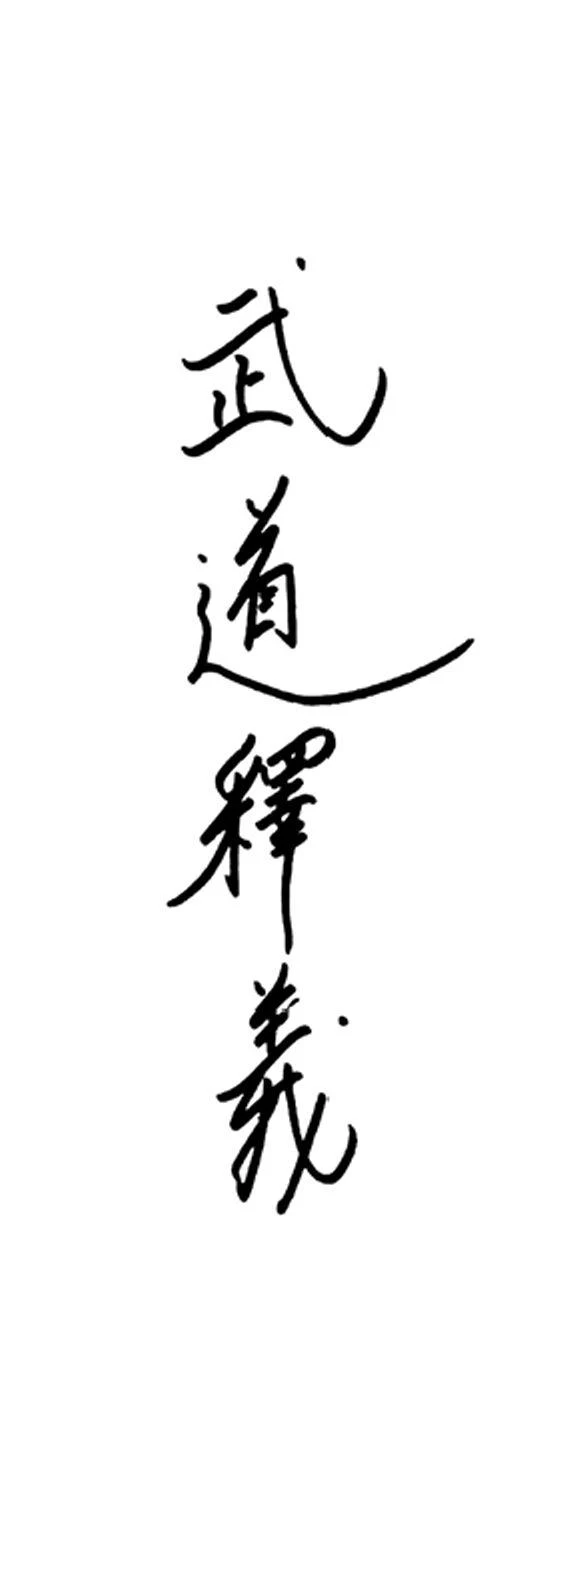 武道釋義